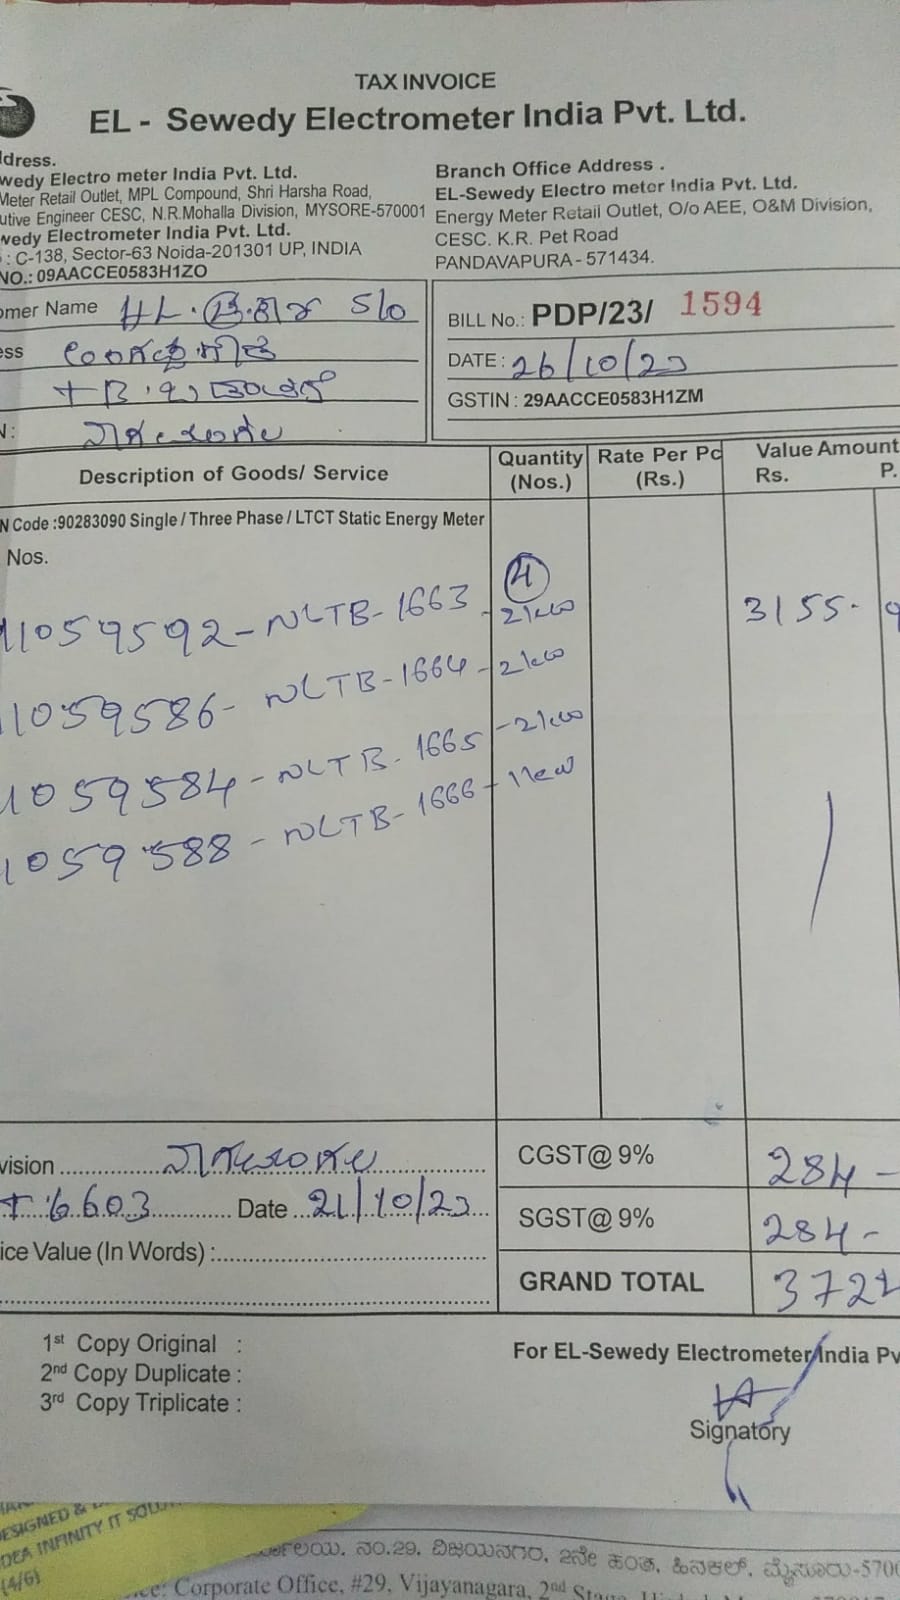 TAX INVOICE
EL - Sewedy Electrometer India Pvt. Ltd.
ddress.
wedy Electro meter India Pvt. Ltd.
Meter Retail Outlet, MPL Compound, Shri Harsha Road,
utive Engineer CESC, N.R.Mohalla Division, MYSORE-570001
wedy Electrometer India Pvt. Ltd.
: C-138, Sector-63 Noida-201301 UP, INDIA
NO.: 09AACCE0583H1ZO
Branch Office Address .
EL-Sewedy Electro meter India Pvt. Ltd.
Energy Meter Retail Outlet, O/o AEE, O&M Division,
CESC. K.R. Pet Road
PANDAVAPURA - 571434.
omer Name
S/o
ess
N :
BILL No.: PDP/23/ 1594
DATE : 26/10/23
GSTIN : 29AACCE0583H1ZM
Description of Goods/ Service
Quantity (Nos.)
Rate Per Pc (Rs.)
Value Amount
Rs. P.
N Code :90283090 Single / Three Phase / LTCT Static Energy Meter
Nos.
4
11059592 - NLTB-1663 - 2kw
3155-
11059586 - NLTB-1664 - 2kw
11059584 - NLTB-1665 - 2kw
1059588 - NLTB-1666 - 1kw
vision
CGST@ 9% 284 -
6603 Date 21/10/23
SGST@ 9% 284 -
ice Value (In Words) :
GRAND TOTAL
1st Copy Original :
2nd Copy Duplicate :
3rd Copy Triplicate :
For EL-Sewedy Electrometer India Pv
Signatory
DEA INFINITY IT
(4/6)
ನಂ.29, ವಿಜಯನಗರ, 2ನೇ ಹಂತ, ಹಿನಕಲ್, ಮೈಸೂರು-5700
Corporate Office, #29, Vijayanagara, 2nd